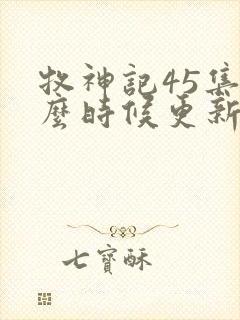 牧神記45集
麼時候更新
七寶酥